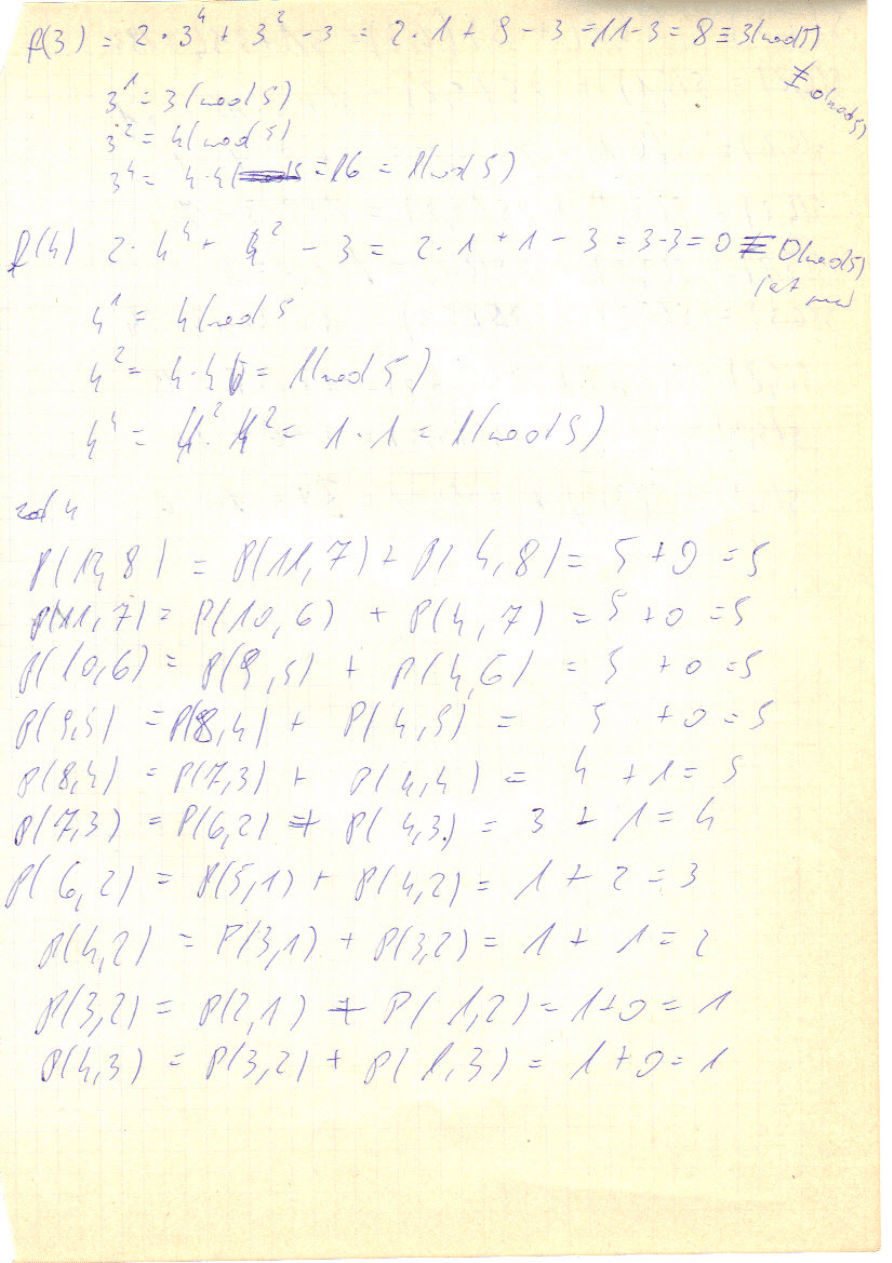 f(3) = 2 · 3⁴ + 3² - 3 = 2 · 1 + 9 - 3 = 11 - 3 = 8 ≡ 3 (mod 5)
≢ 0 (mod 5)
3¹ = 3 (mod 5)
3² = 4 (mod 5)
3⁴ = 4·4 = 16 = 1 (mod 5)
f(4) 2 · 4⁴ + 4² - 3 = 2 · 1 + 1 - 3 = 3 - 3 = 0 ≡ 0 (mod 5)
jest
4¹ = 4 (mod 5
4² = 4·4 = 1 (mod 5)
4⁴ = 4² · 4² = 1 · 1 = 1 (mod 5)
zad 4
P(12,8) = P(11,7) + P(4,8) = 5 + 0 = 5
P(11,7) = P(10,6) + P(4,7) = 5 + 0 = 5
P(10,6) = P(9,5) + P(4,6) = 5 + 0 = 5
P(9,5) = P(8,4) + P(4,5) = 5 + 0 = 5
P(8,4) = P(7,3) + P(4,4) = 4 + 1 = 5
P(7,3) = P(6,2) + P(4,3) = 3 + 1 = 4
P(6,2) = P(5,1) + P(4,2) = 1 + 2 = 3
P(4,2) = P(3,1) + P(3,2) = 1 + 1 = 2
P(3,2) = P(2,1) + P(1,2) = 1 + 0 = 1
P(4,3) = P(3,2) + P(1,3) = 1 + 0 = 1